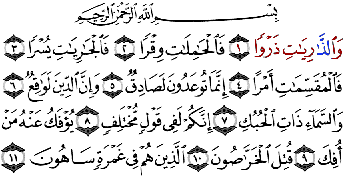 بِسْمِ اللَّهِ الرَّحْمَٰنِ الرَّحِيمِ
وَالذَّارِيَاتِ ذَرْوًا ١ فَالْحَامِلَاتِ وِقْرًا ٢ فَالْجَارِيَاتِ يُسْرًا ٣
فَالْمُقَسِّمَاتِ أَمْرًا ٤ إِنَّمَا تُوعَدُونَ لَصَادِقٌ ٥ وَإِنَّ الدِّينَ لَوَاقِعٌ ٦
وَالسَّمَاءِ ذَاتِ الْحُبُكِ ٧ إِنَّكُمْ لَفِي قَوْلٍ مُخْتَلِفٍ ٨ يُؤْفَكُ عَنْهُ مَنْ
أُفِكَ ٩ قُتِلَ الْخَرَّاصُونَ ١٠ الَّذِينَ هُمْ فِي غَمْرَةٍ سَاهُونَ ١١